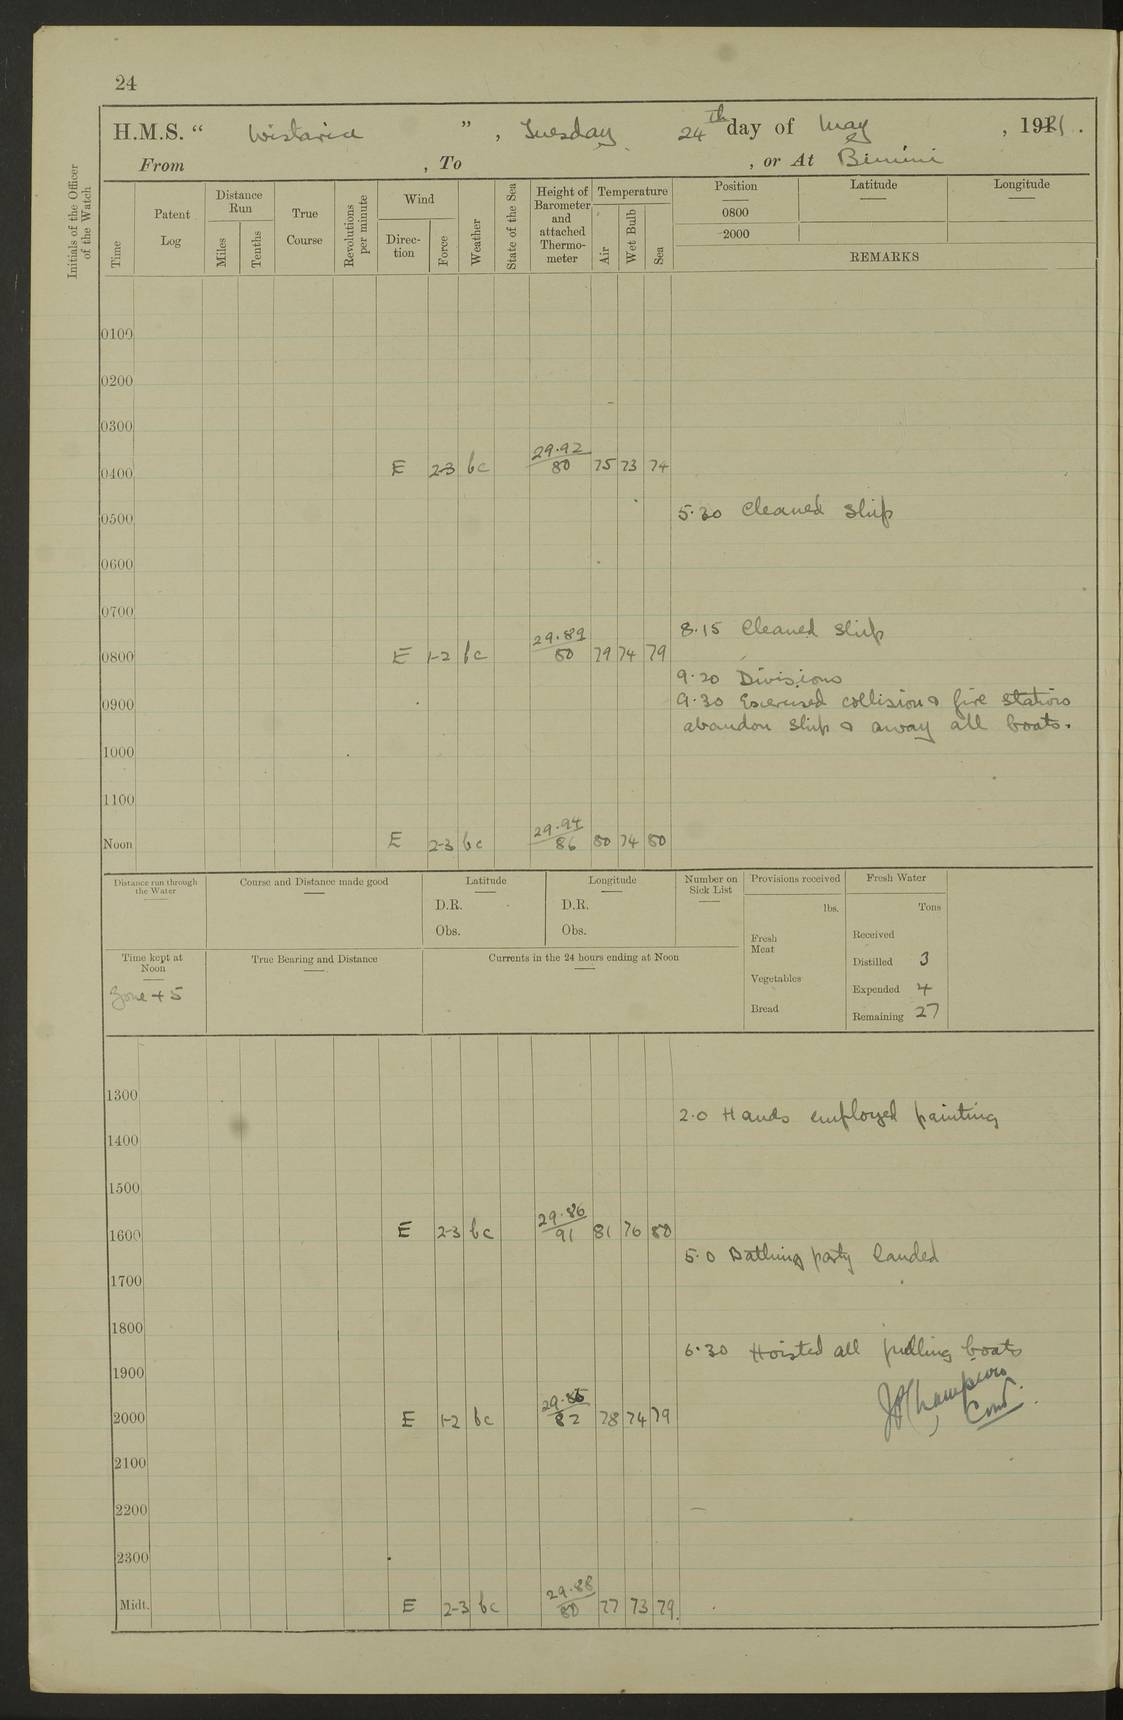 24
H.M.S. " Wistaria ", Tuesday 24th day of May, 1921.
From , To , or At Bimini
Initials of the Officer of the Watch
Time
Patent Log
Distance Run
Miles
Tenths
True Course
Revolutions per minute
Wind
Direc-tion
Force
Weather
State of the Sea
Height of Barometer and attached Thermo-meter
Temperature
Air
Wet Bulb
Sea
Position Latitude Longitude
0800
2000
REMARKS
0100
0200
0300
0400 E 2-3 bc 29.92/80 75 73 74
0500 5.30 Cleaned ship
0600
0700
8.15 Cleaned ship
0800 E 1-2 bc 29.89/80 79 74 79
9.20 Divisions
0900 9.30 Exercised collision & fire stations
abandon ship & away all boats.
1000
1100
Noon E 2-3 bc 29.94/86 80 74 80
Distance run through the Water
Course and Distance made good
Latitude
D.R.
Obs.
Longitude
D.R.
Obs.
Number on Sick List
Provisions received
lbs.
Fresh Meat
Vegetables
Bread
Fresh Water
Tons
Received
Distilled 3
Expended 4
Remaining 27
Time kept at Noon
Zone + 5
True Bearing and Distance
Currents in the 24 hours ending at Noon
1300
2.0 Hands employed painting
1400
1500
1600 E 2-3 bc 29.86/91 81 76 80
5.0 Bathing party landed
1700
1800
6.30 Hoisted all pulling boats
1900
2000 E 1-2 bc 29.85/82 78 74 79
2100
2200
2300
Midt. E 2-3 bc 29.88/80 77 73 79.